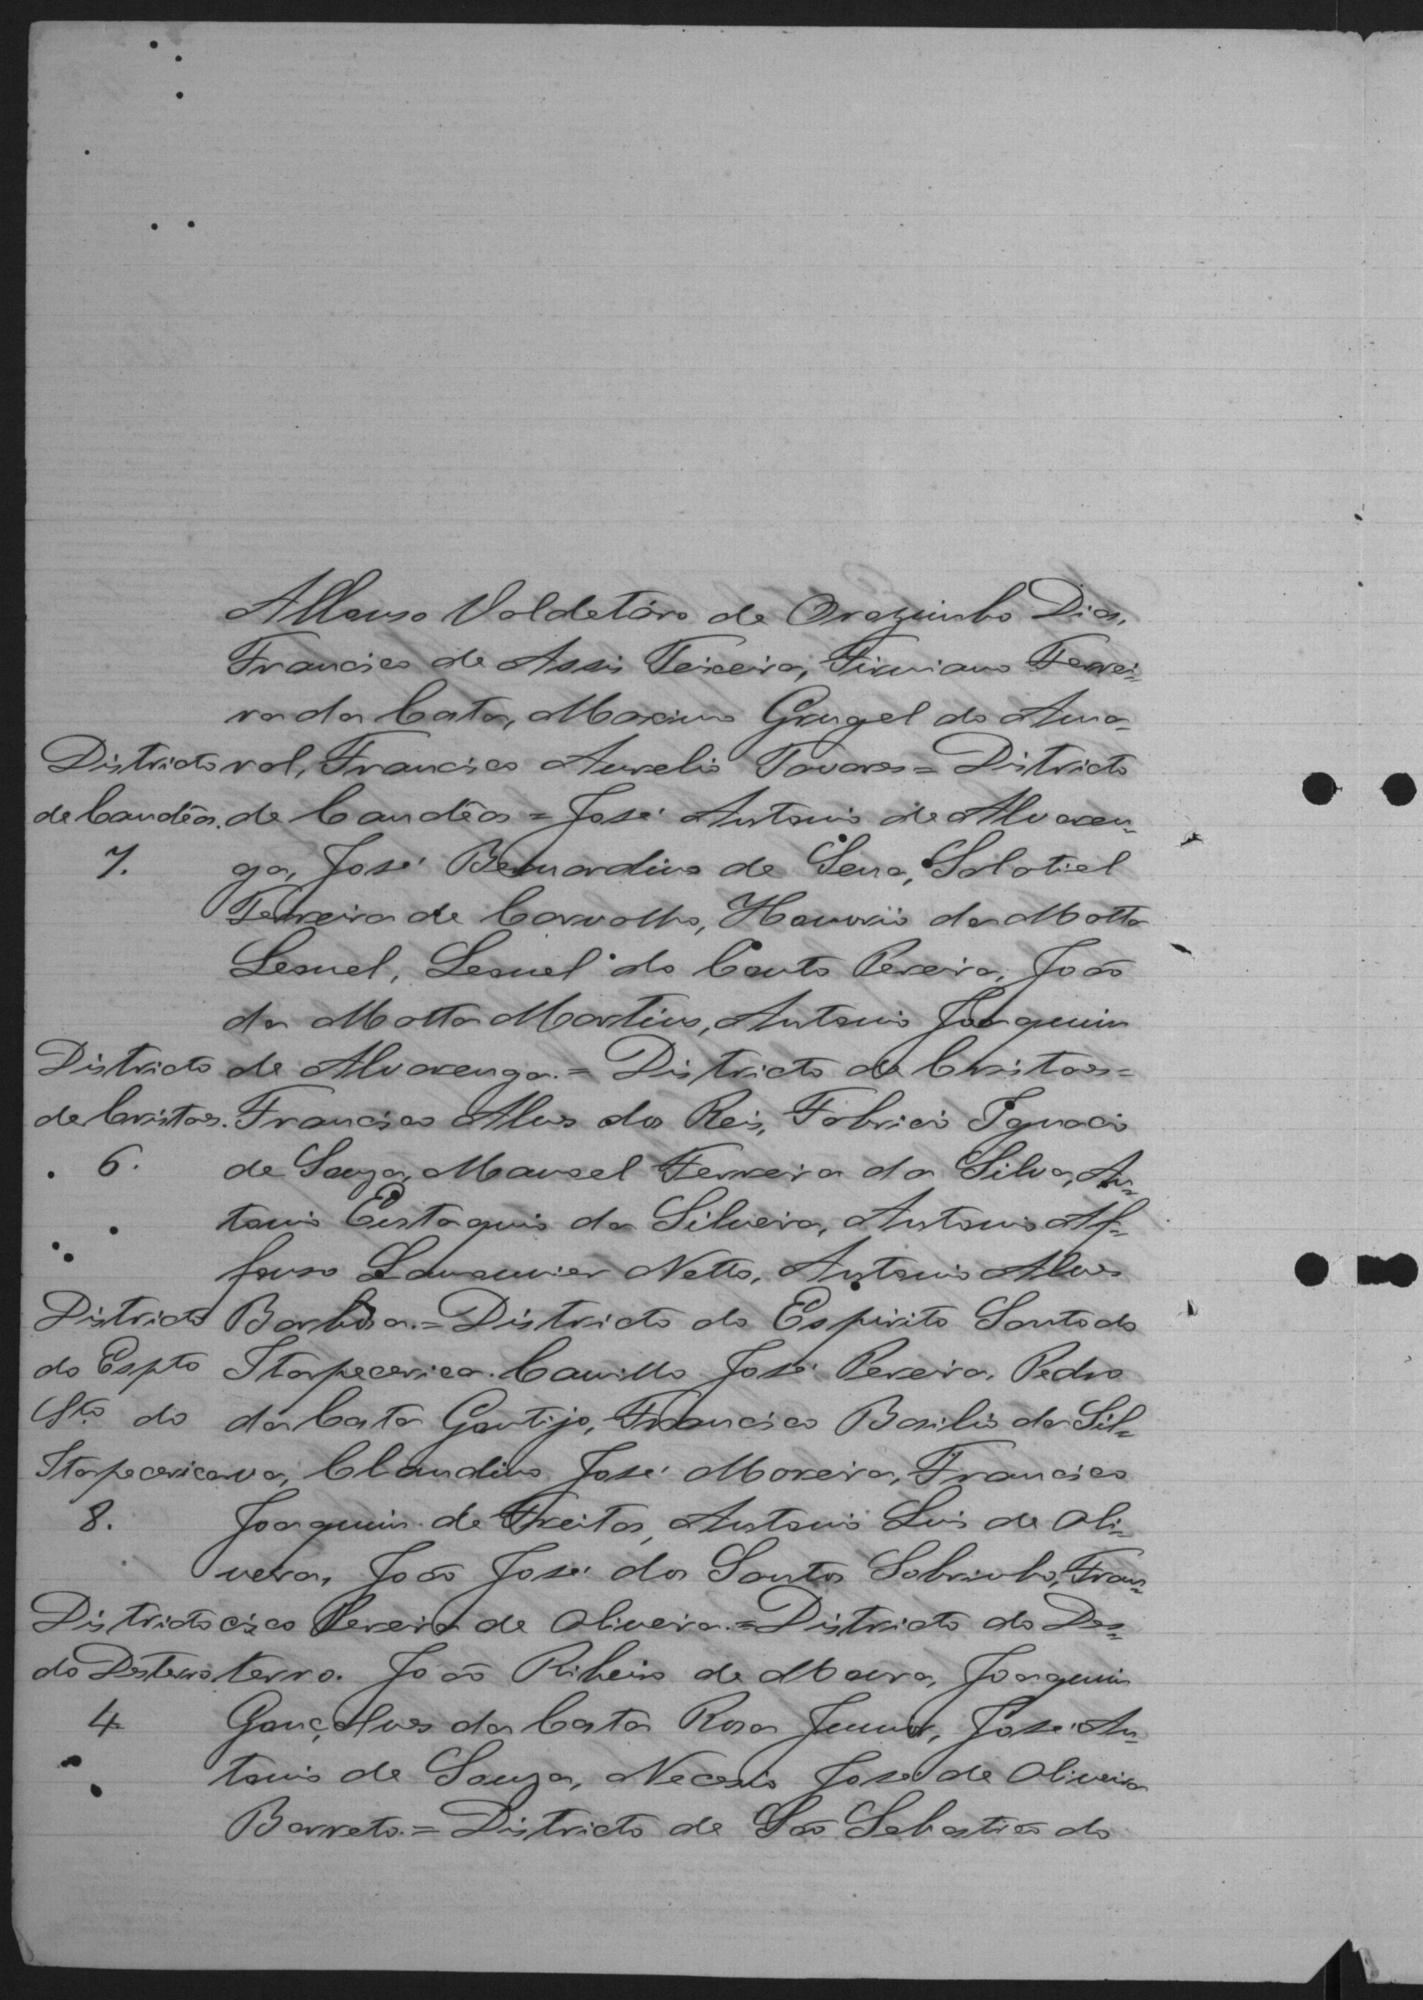 Affonso Valdetáro de Orozimbo Dias,
Francisco de Assis Teixeira, Firmiano Ferrei-
ra da Costa, Maximo Gurgel do Ama-
Districto ral, Francisco Aurelio Tavares = Districto
de Candêas. de Candêas = José Antonio de Alvaren-
7. ga, José Bernardino de Sena, Salatiel
Ferreira de Carvalho, Honorio da Motta
Lemuel, Lemuel do Couto Pereira, João
da Motta Martins, Antonio Joaquim
Districto de Alvarenga. = Districto de Cristaes =
de Cristaes. Francisco Alves dos Reis, Fabricio Ignacio
6. de Souza, Manoel Ferreira da Silva, An-
tonio Eustaquio da Silveira, Antonio Af-
fonso Lamounier Netto, Antonio Alves
Districto Barbosa. = Districto do Espirito Santo do
do Espto Itapecerica. Camillo José Pereira, Pedro
Sto do da Costa Gontijo, Francisco Basilio da Sil-
Itapecerica va, Claudino José Moreira, Francisco
8. Joaquim de Freitas, Antonio Luis de Oli-
veira, João José dos Santos Sobrinho, Fran-
Districto cisco Pereira de Oliveira. = Districto do Des-
do Desterro terro. João Ribeiro de Moura, Joaquim
4 Gonçalves da Costa Rosa Junior, José An-
tonio de Souza, Necesio José de Oliveira
Barreto. = Districto de São Sebastião do